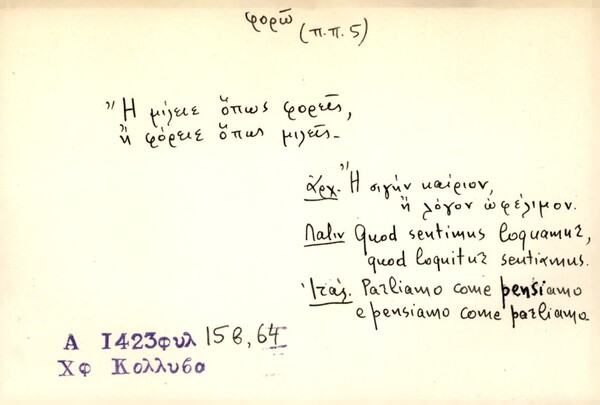 φορῶ (π.π. 5)
"Ἢ μίλειε ὅπως φορεῖς,
ἢ φόρειε ὅπως μιλεῖς.
ἀρχ. "Ἢ σιγὴν καίριον,
ἢ λόγον ὠφέλιμον.
Λατιν Quod sentimus loquamur,
quod loquitur sentiamus.
Ἰταλ. Parliamo come pensiamo
e pensiamo come parliamo
Α 1423φυλ 15β, 64
Χφ Κολλυβα